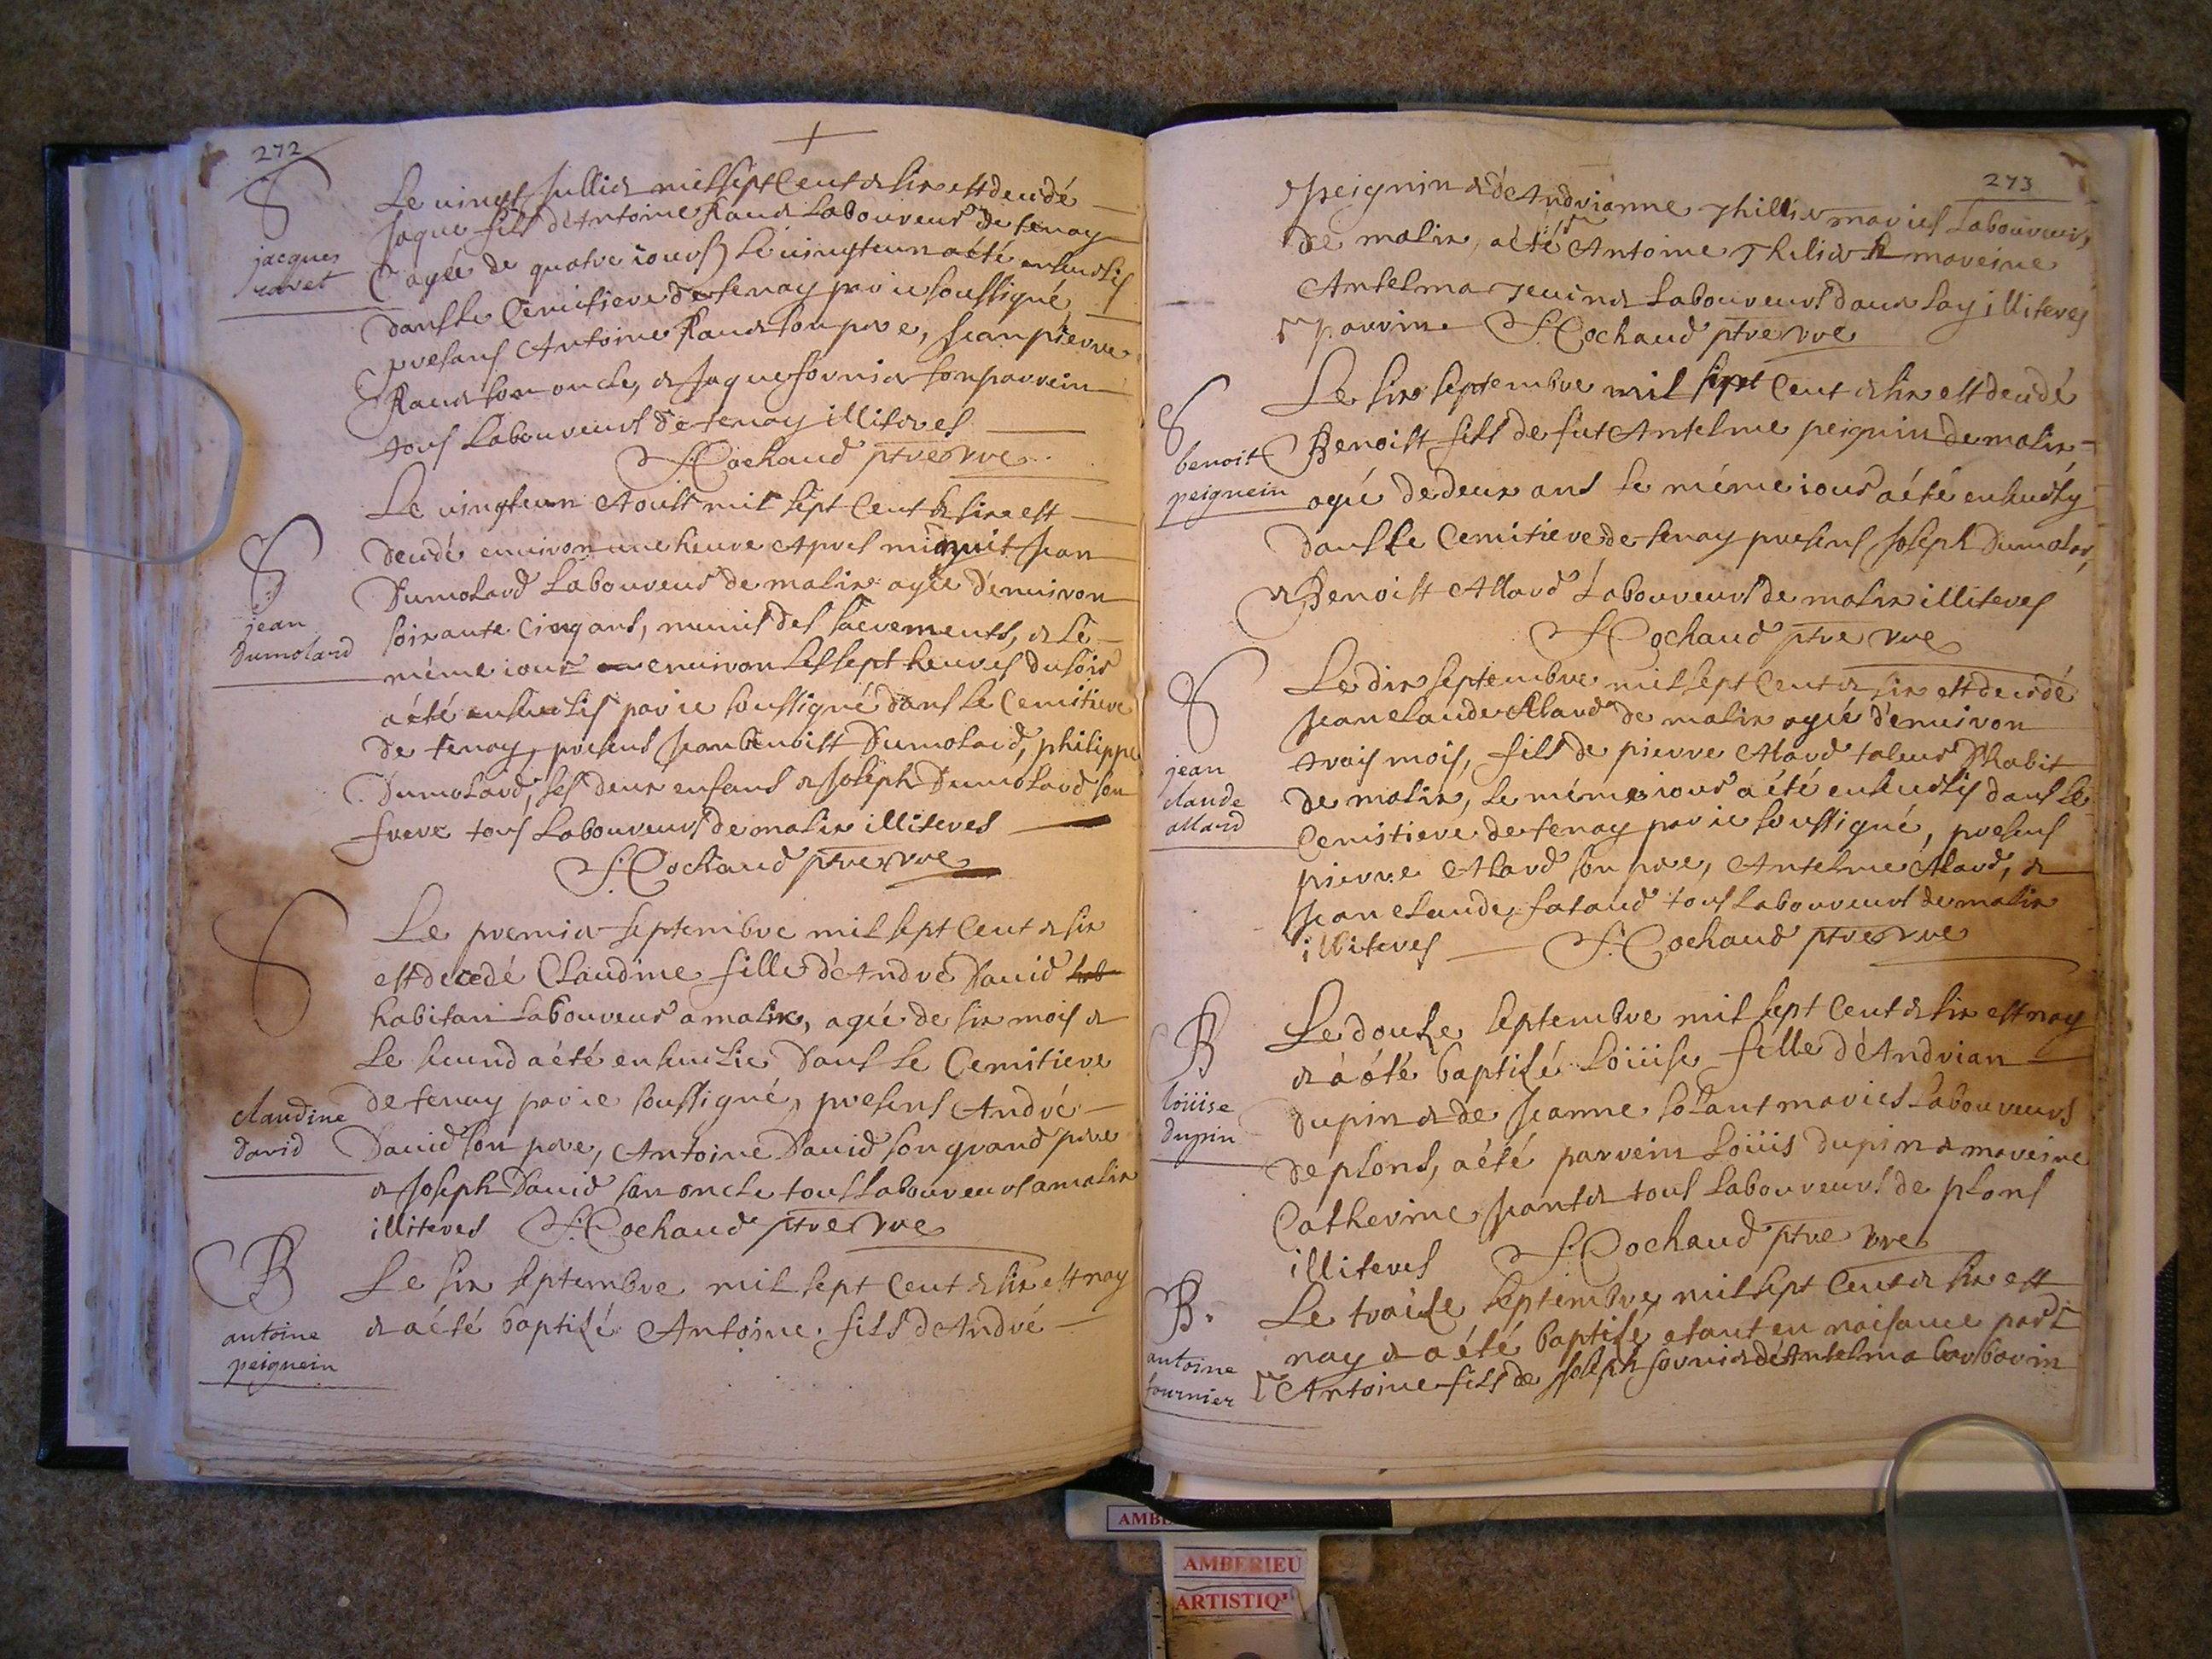 272
+
S
jacques
ravet
Le vingt Jullier mil sept Cent & six est decedé
Jaque fils d'Antoine Ravet Laboureur de tenay
(agée de quatre iours) le vingteun a été ensevelis
dans le Cemitiere de tenay par ie soussigné,
presens Antoine Raver son pere, Jean pierre
Raver son oncle, & Jaque fornier son parrein
tous Laboureurs de tenay illiteres
S: Cochaud ptre vre
S
jean
Dumolard
Le vingteun Aoust mil sept Cent & six est
decedé environ une heure Apres minuit Jean
Dumolard Laboureur de malix agée d'environ
soixante Cinq ans, munis des sacrements, & le
méme iour environ les sept heures du soir
a été ensevelis par ie soussigné dans le Cemitiere
de tenay, presens Jean benoist Dumolard, philippe
Dumolard, ses deux enfans & Joseph Dumolard son
frere tous Laboureurs de malix illiteres
S: Cochaud ptre vre
S
claudine
David
Le premier septembre mil sept Cent & six
est decedé Claudine fille d'André David
habitan Laboureur a malix, agée de six mois &
le second a été ensevelie Dans le Cemitiere
de tenay par ie soussigné, presens André
David son pere, Antoine David son grand pere
& Joseph David son oncle tous Laboureurs a malix
illiteres S: Cochaud ptre vre
B
antoine
peignein
Le six septembre mil sept Cent & six est nay
& a été baptisé Antoine fils d'André
273
peignin & d'Andrianne Thillier maries Laboureurs
de malix, a été Antoine Thilier & mareine
Antelma Laboureurs illiteres
parrin S: Cochaud ptre vre
S
benoit
peignein
Le six septembre mil sept Cent & six est decedé
Benoist fils de fut Antelme peignin de malix
agé de deux ans le méme iour a été ensevely
dans le Cemitiere de tenay presens Joseph Dumolar,
& Benoist Allard Laboureurs de malix illiteres
S: Cochaud ptre vre
S
jean
claude
allard
Le dix septembre mil sept Cent & six est decedé
Jean claude Alard de malix agée d'environ
trois mois, fils de pierre Alard D'habit
de malix, le méme iour a été ensevelis dans le
Cemitiere de tenay par ie soussigné, presens
pierre Alard son pere, Antelme Alard, &
Jean claude fataud tous Laboureurs de malix
illiteres S: Cochaud ptre vre
B
loüise
dupin
Le douze septembre mil sept Cent & six est nay
& a été baptisé Loüise fille d'Andrian
Dupin & de Jeanne maries Laboureurs
de plons, a été parrein Loüis Dupin & mareine
Catherine tous Laboureurs de plons
illiteres S: Cochaud ptre vre
B.
antoine
fournier
Le traise septembre mil sept Cent & six est
nay & a été baptisé etant en naisance
Antoine fils de Joseph fornier & d'Antelma barbarin
AMBE
AMBERIEU
ARTISTIQU